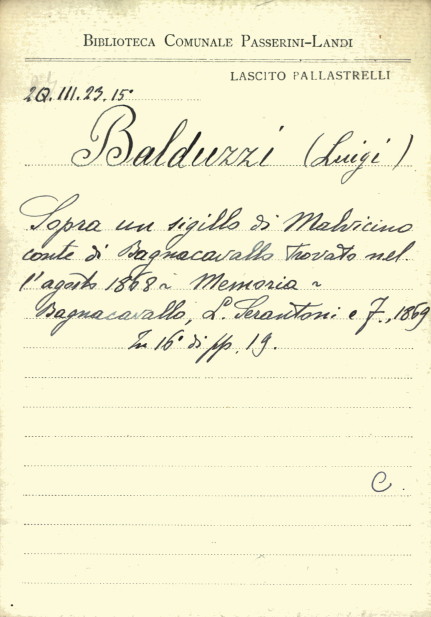 BIBLIOTECA COMUNALE PASSERINI-LANDI
LASCITO PALLASTRELLI
2Q.III.23.15°
Balduzzi (Luigi)
Sopra un sigillo di Malvicino
conte di Bagnacavallo trovato nel-
l'agosto 1868 - Memoria -
Bagnacavallo, L. Serantoni e F., 1869
In 16° di pp. 19.
C.